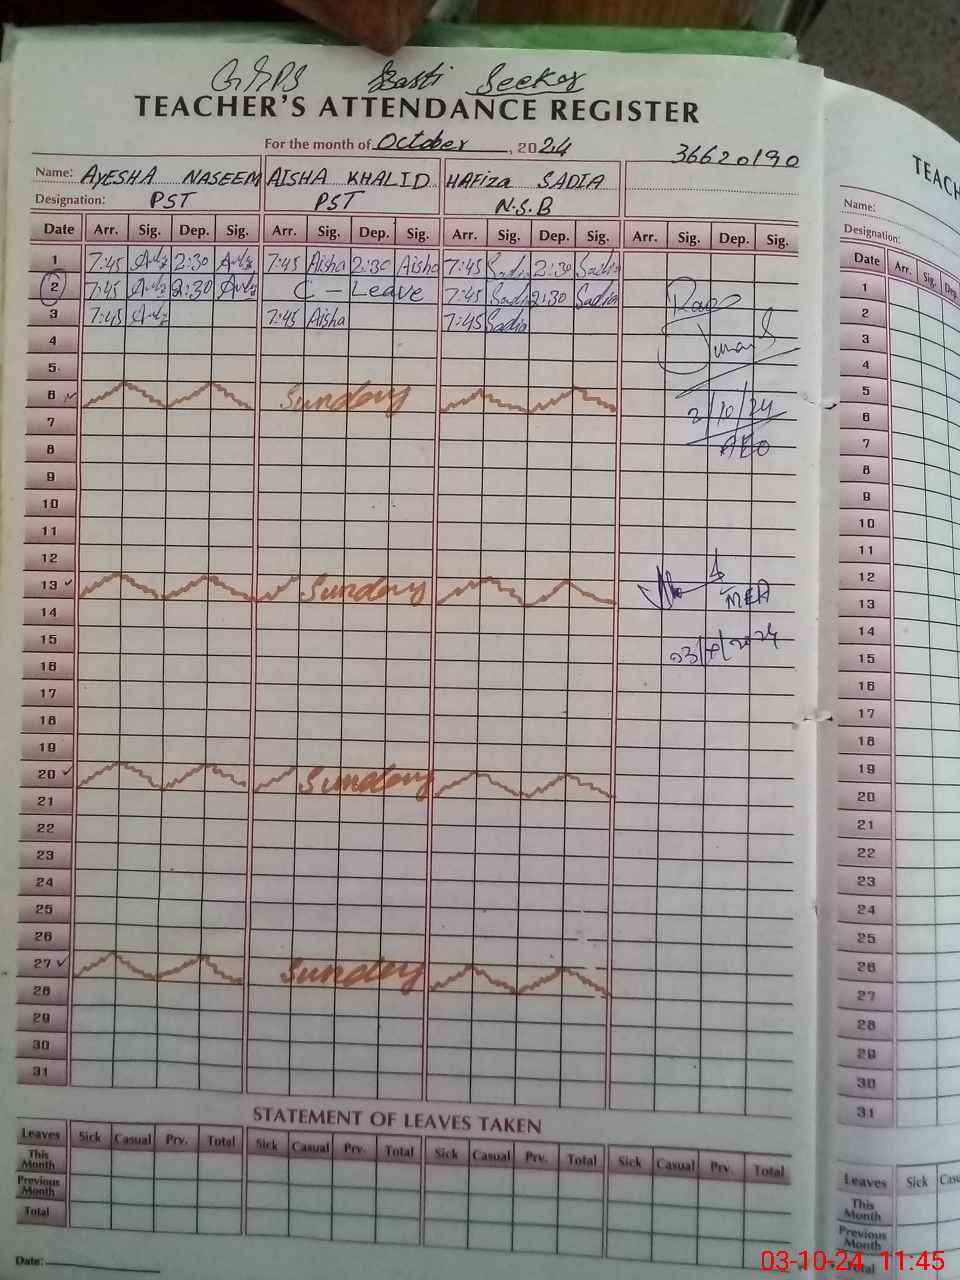 GGPS Basti Seekar
TEACHER'S ATTENDANCE REGISTER
For the month of October, 2024
36620190
Name: AYESHA NASEEM AISHA KHALID HAFiza SADIA
Designation: PST PST N.S.B
Date Arr. Sig. Dep. Sig. Arr. Sig. Dep. Sig. Arr. Sig. Dep. Sig. Arr. Sig. Dep. Sig.
1 7:45 2:30 7:45 Aisha 2:30 Aisha 7:45 Sadia 2:30 Sadia
2 7:45 2:30 C - Leave 7:45 Sadia 2:30 Sadia
3 7:45 7:45 Aisha 7:45 Sadia
4
5
6 Sunday
2/10/24
7
AEO
8
9
10
11
12
13 Sunday
MEA
14
15
16
17
18
19
20 Sunday
21
22
23
24
25
26
27 Sunday
28
29
30
31
STATEMENT OF LEAVES TAKEN
Leaves Sick Casual Prv. Total Sick Casual Prv. Total Sick Casual Prv. Total Sick Casual Prv. Total
This Month
Previous Month
Total
Date:
TEACH
Name:
Designation:
Date Arr. Sig. Dep
1
2
3
4
5
6
7
8
9
10
11
12
13
14
15
16
17
18
19
20
21
22
23
24
25
26
27
28
29
30
31
Leaves Sick Cas
This Month
Previous Month
Total
03-10-24 11:45